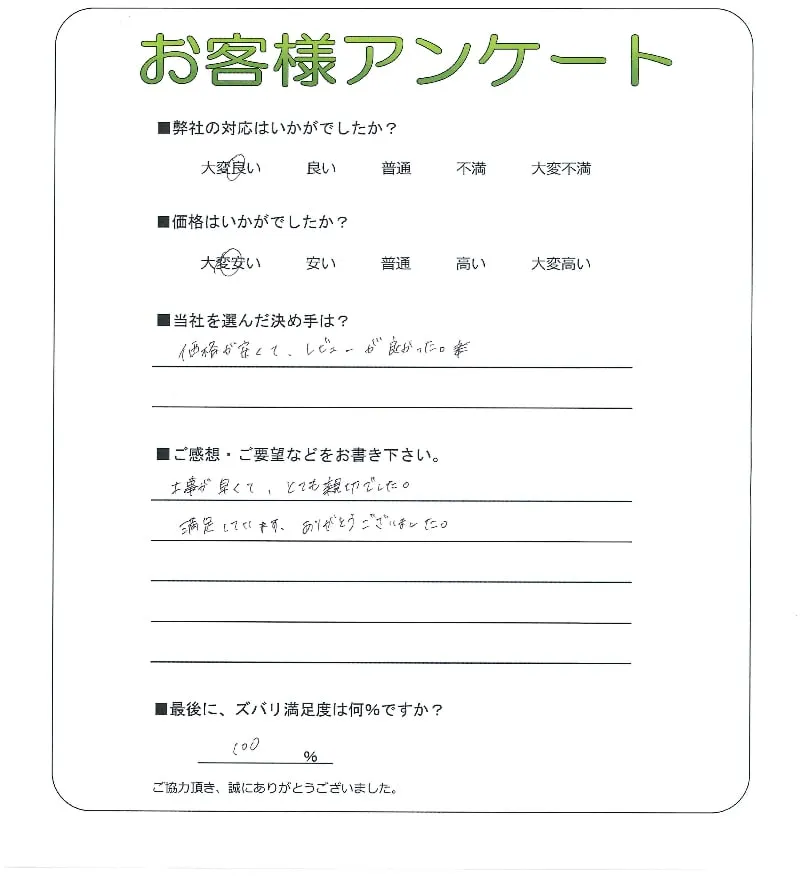 お客様アンケート
■弊社の対応はいかがでしたか？
大変良い 良い 普通 不満 大変不満
■価格はいかがでしたか？
大変安い 安い 普通 高い 大変高い
■当社を選んだ決め手は？
価格が安くて、レビューが良かった。
■ご感想・ご要望などをお書き下さい。
工事が早くて、とても親切でした。
満足しています、ありがとうございました。
■最後に、ズバリ満足度は何％ですか？
100 ％
ご協力頂き、誠にありがとうございました。